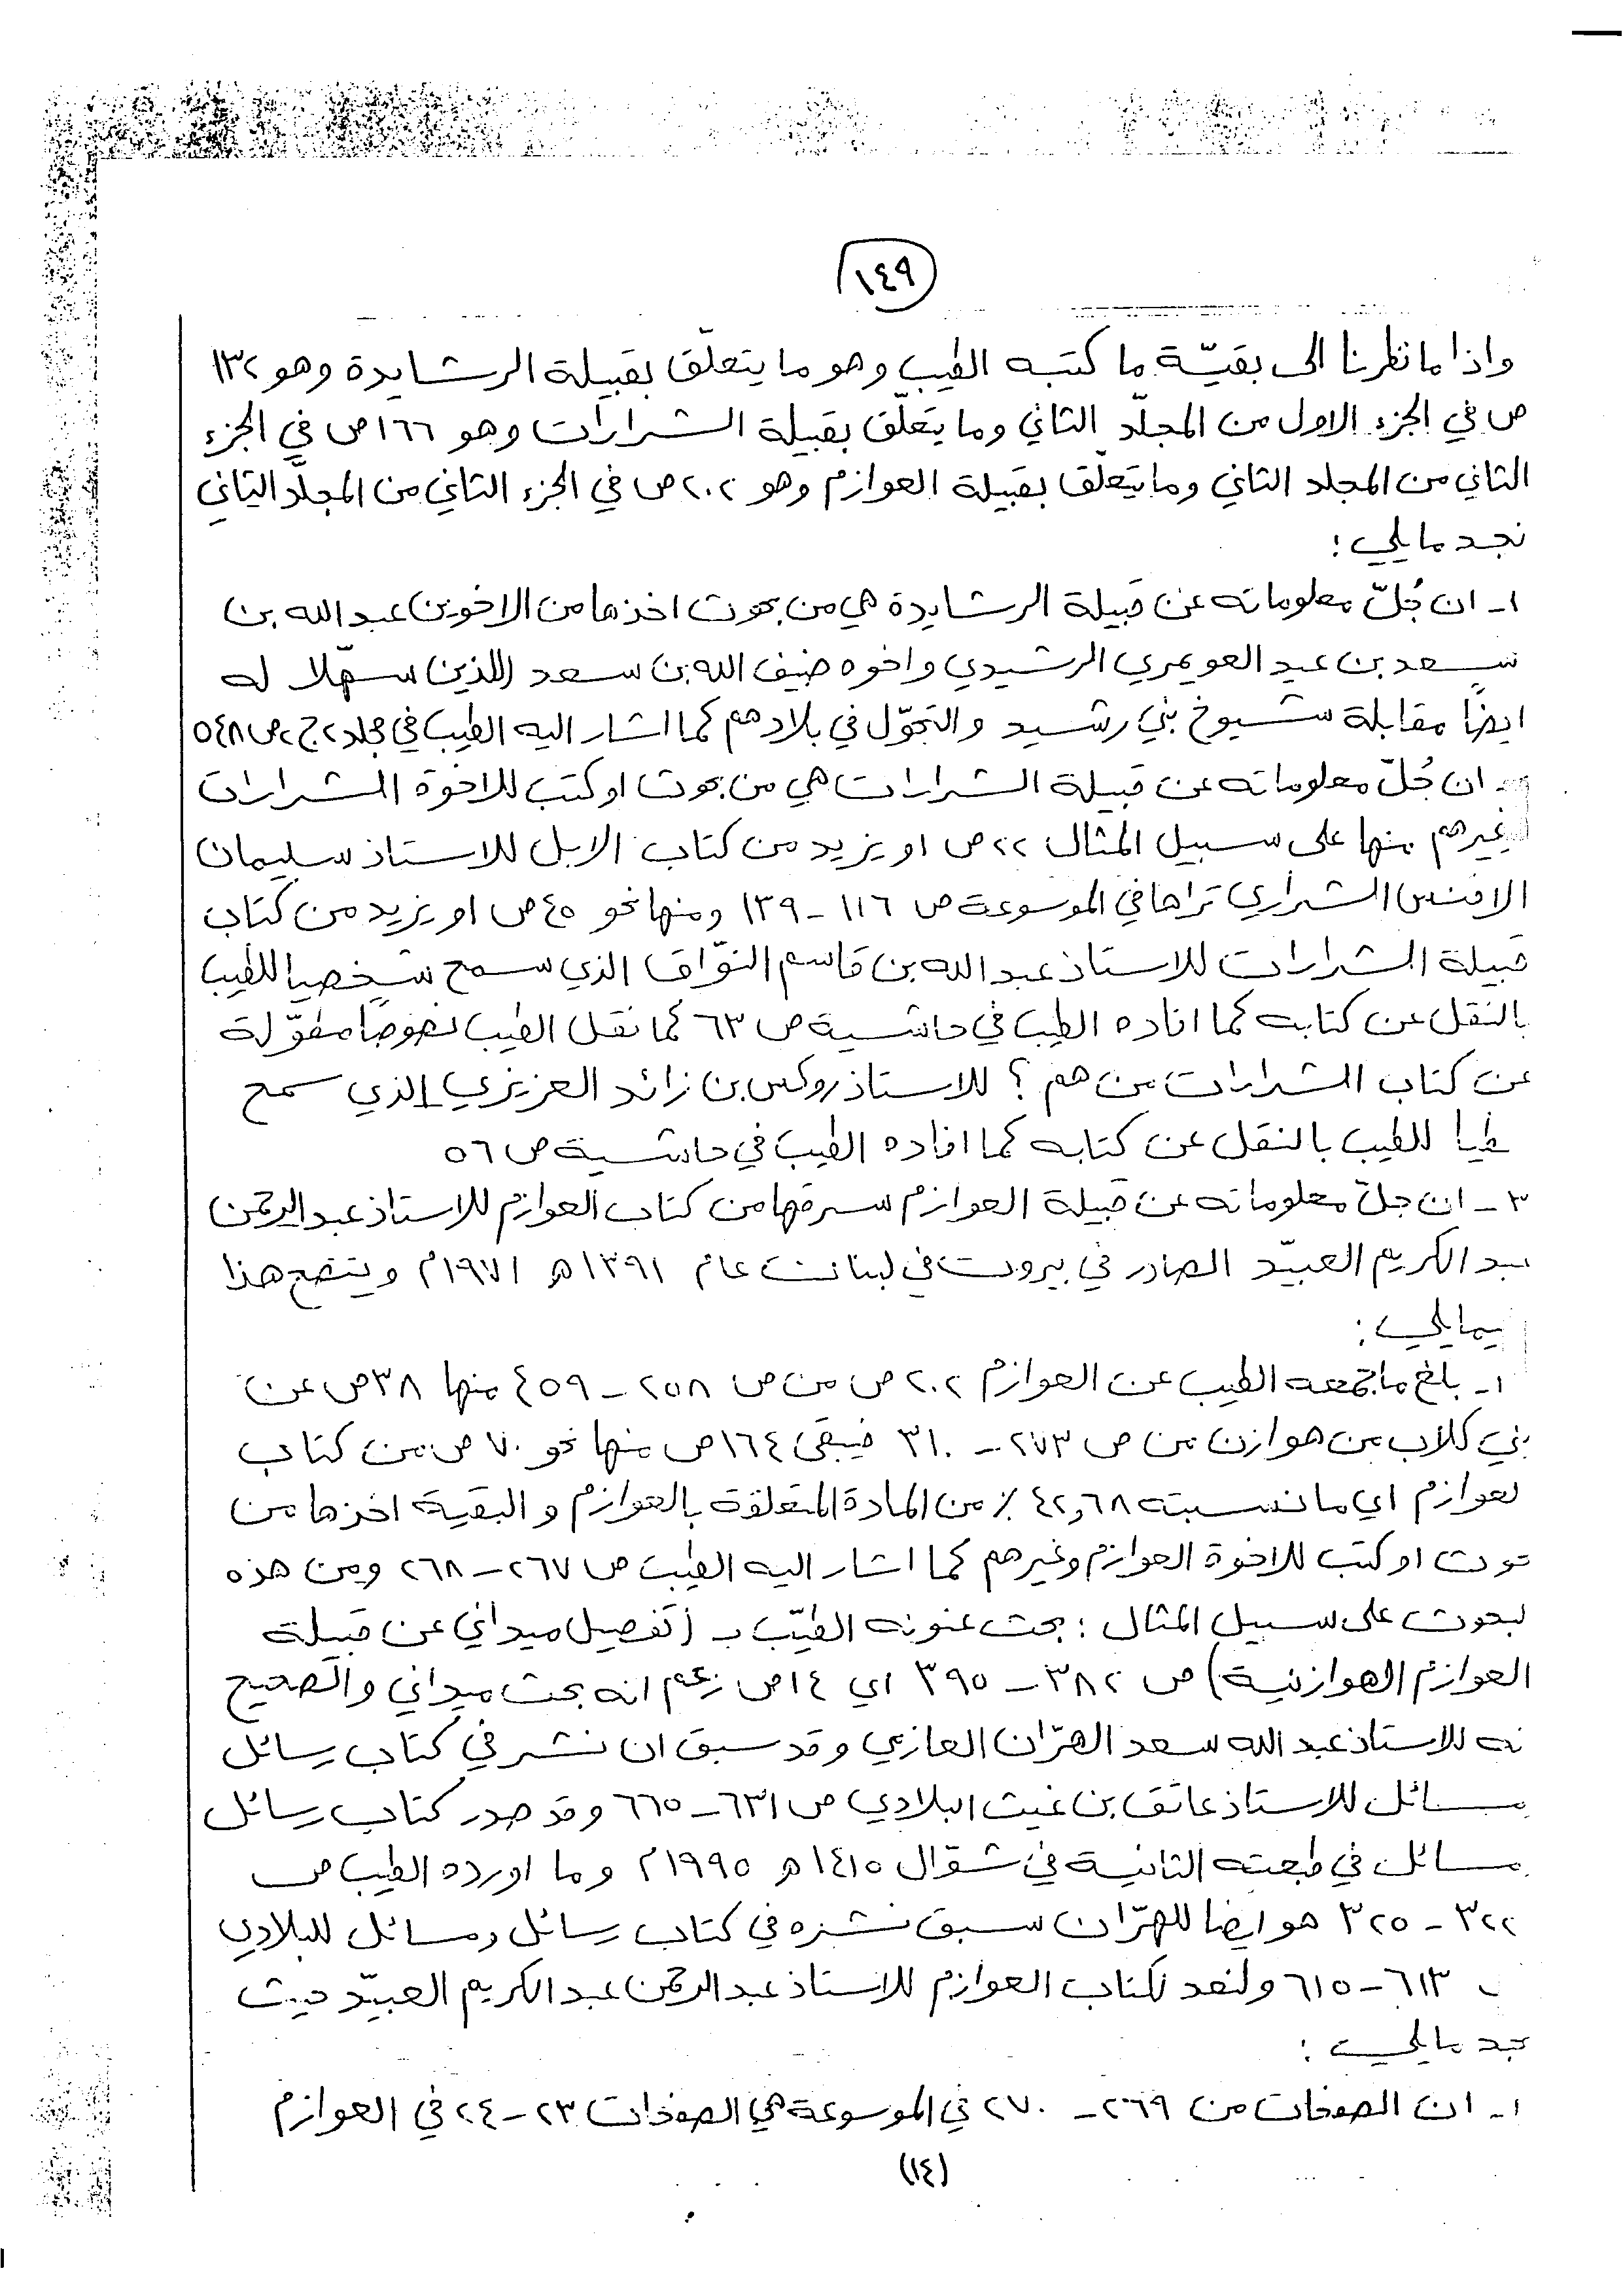 ١٤٩
واذا ما نظرنا الى بقيّة ما كتبه الطيب وهو ما يتعلّق بقبيلة الرشايدة وهو ١٣٢
ص في الجزء الاول من المجلّد الثاني وما يتعلّق بقبيلة الشرارات وهو ١٦٦ ص في الجزء
الثاني من المجلد الثاني وما يتعلّق بقبيلة العوازم وهو ٢٠٢ ص في الجزء الثاني من المجلّد الثاني
نجد ما يلي :
١- ان جُلّ معلوماته عن قبيلة الرشايدة هي من بحوث اخذها من الاخوين عبد الله بن
سعد بن عيد العويمري الرشيدي واخوه ضيف الله بن سعد اللذين سهّلا له
ايضاً مقابلة شيوخ بني رشيد والتجوّل في بلادهم كما اشار اليه الطيب في مجلد ٢ ج ٢ ص ٥٤٨
- ان جُلّ معلوماته عن قبيلة الشرارات هي من بحوث او كتب للاخوة الشرارات
غيرهم منها على سبيل المثال ٢٢ ص او يزيد من كتاب الابل للاستاذ سليمان
الافنس الشراري تراها في الموسوعة ص ١١٦ - ١٣٩ ومنها نحو ٤٥ ص او يزيد من كتاب
قبيلة الشرارات للاستاذ عبد الله بن قاسم النوّاق الذي سمح شخصيا للطيب
بالنقل عن كتابه كما افاده الطيب في حاشية ص ٦٣ كما نقل الطيب نصوصاً مطوّلة
عن كتاب الشرارات من هم ؟ للاستاذ روكس بن زائد العزيزي الذي سمح
طيا للطيب بالنقل عن كتابه كما افاده الطيب في حاشية ص ٥٦
٣- ان جلّ معلوماته عن قبيلة العوازم سرقها من كتاب العوازم للاستاذ عبد الرحمن
عبد الكريم العبيّد الصادر في بيروت في لبنان عام ١٣٩١ هـ ١٩٧١ م ويتضح هذا
يما يلي :
١- بلغ ما جمعه الطيب عن العوازم ٢٠٢ ص من ص ٢٥٨ - ٤٥٩ منها ٣٨ ص عن
بني كلاب من هوازن من ص ٢٧٣ - ٣١٠ فيبقى ١٦٤ ص منها نحو ٧٠ ص من كتاب
لعوازم اي ما نسبته ٤٢,٦٨ ٪ من المادة المتعلقة بالعوازم والبقية اخذها من
حوث او كتب للاخوة العوازم وغيرهم كما اشار اليه الطيب ص ٢٦٧ - ٢٦٨ ومن هذه
لبحوث على سبيل المثال : بحث عنونه الطيّب بـ (تفصيل ميداني عن قبيلة
العوازم الهوازنية) ص ٣٨٢ - ٣٩٥ اي ١٤ ص زعم انه بحث ميداني والصحيح
نه للاستاذ عبد الله سعد الهرّان العازمي وقد سبق ان نشر في كتاب رسائل
مسائل للاستاذ عاتق بن غيث البلادي ص ٦٣١ - ٦٦٥ وقد صدر كتاب رسائل
مسائل في طبعته الثانية في شوّال ١٤١٥ هـ ١٩٩٥ م وما اورده الطيب ص
٣٢٢ - ٣٢٥ هو ايضا للهرّان سبق نشره في كتاب رسائل ومسائل للبلادي
٦١٣ - ٦١٥ ولنعد لكتاب العوازم للاستاذ عبد الرحمن عبد الكريم العبيّد حيث
نجد ما يلي :
١- ان الصفحات من ٢٦٩ - ٢٧٠ في الموسوعة هي الصفحات ٢٣ - ٢٤ في العوازم
(١٤)